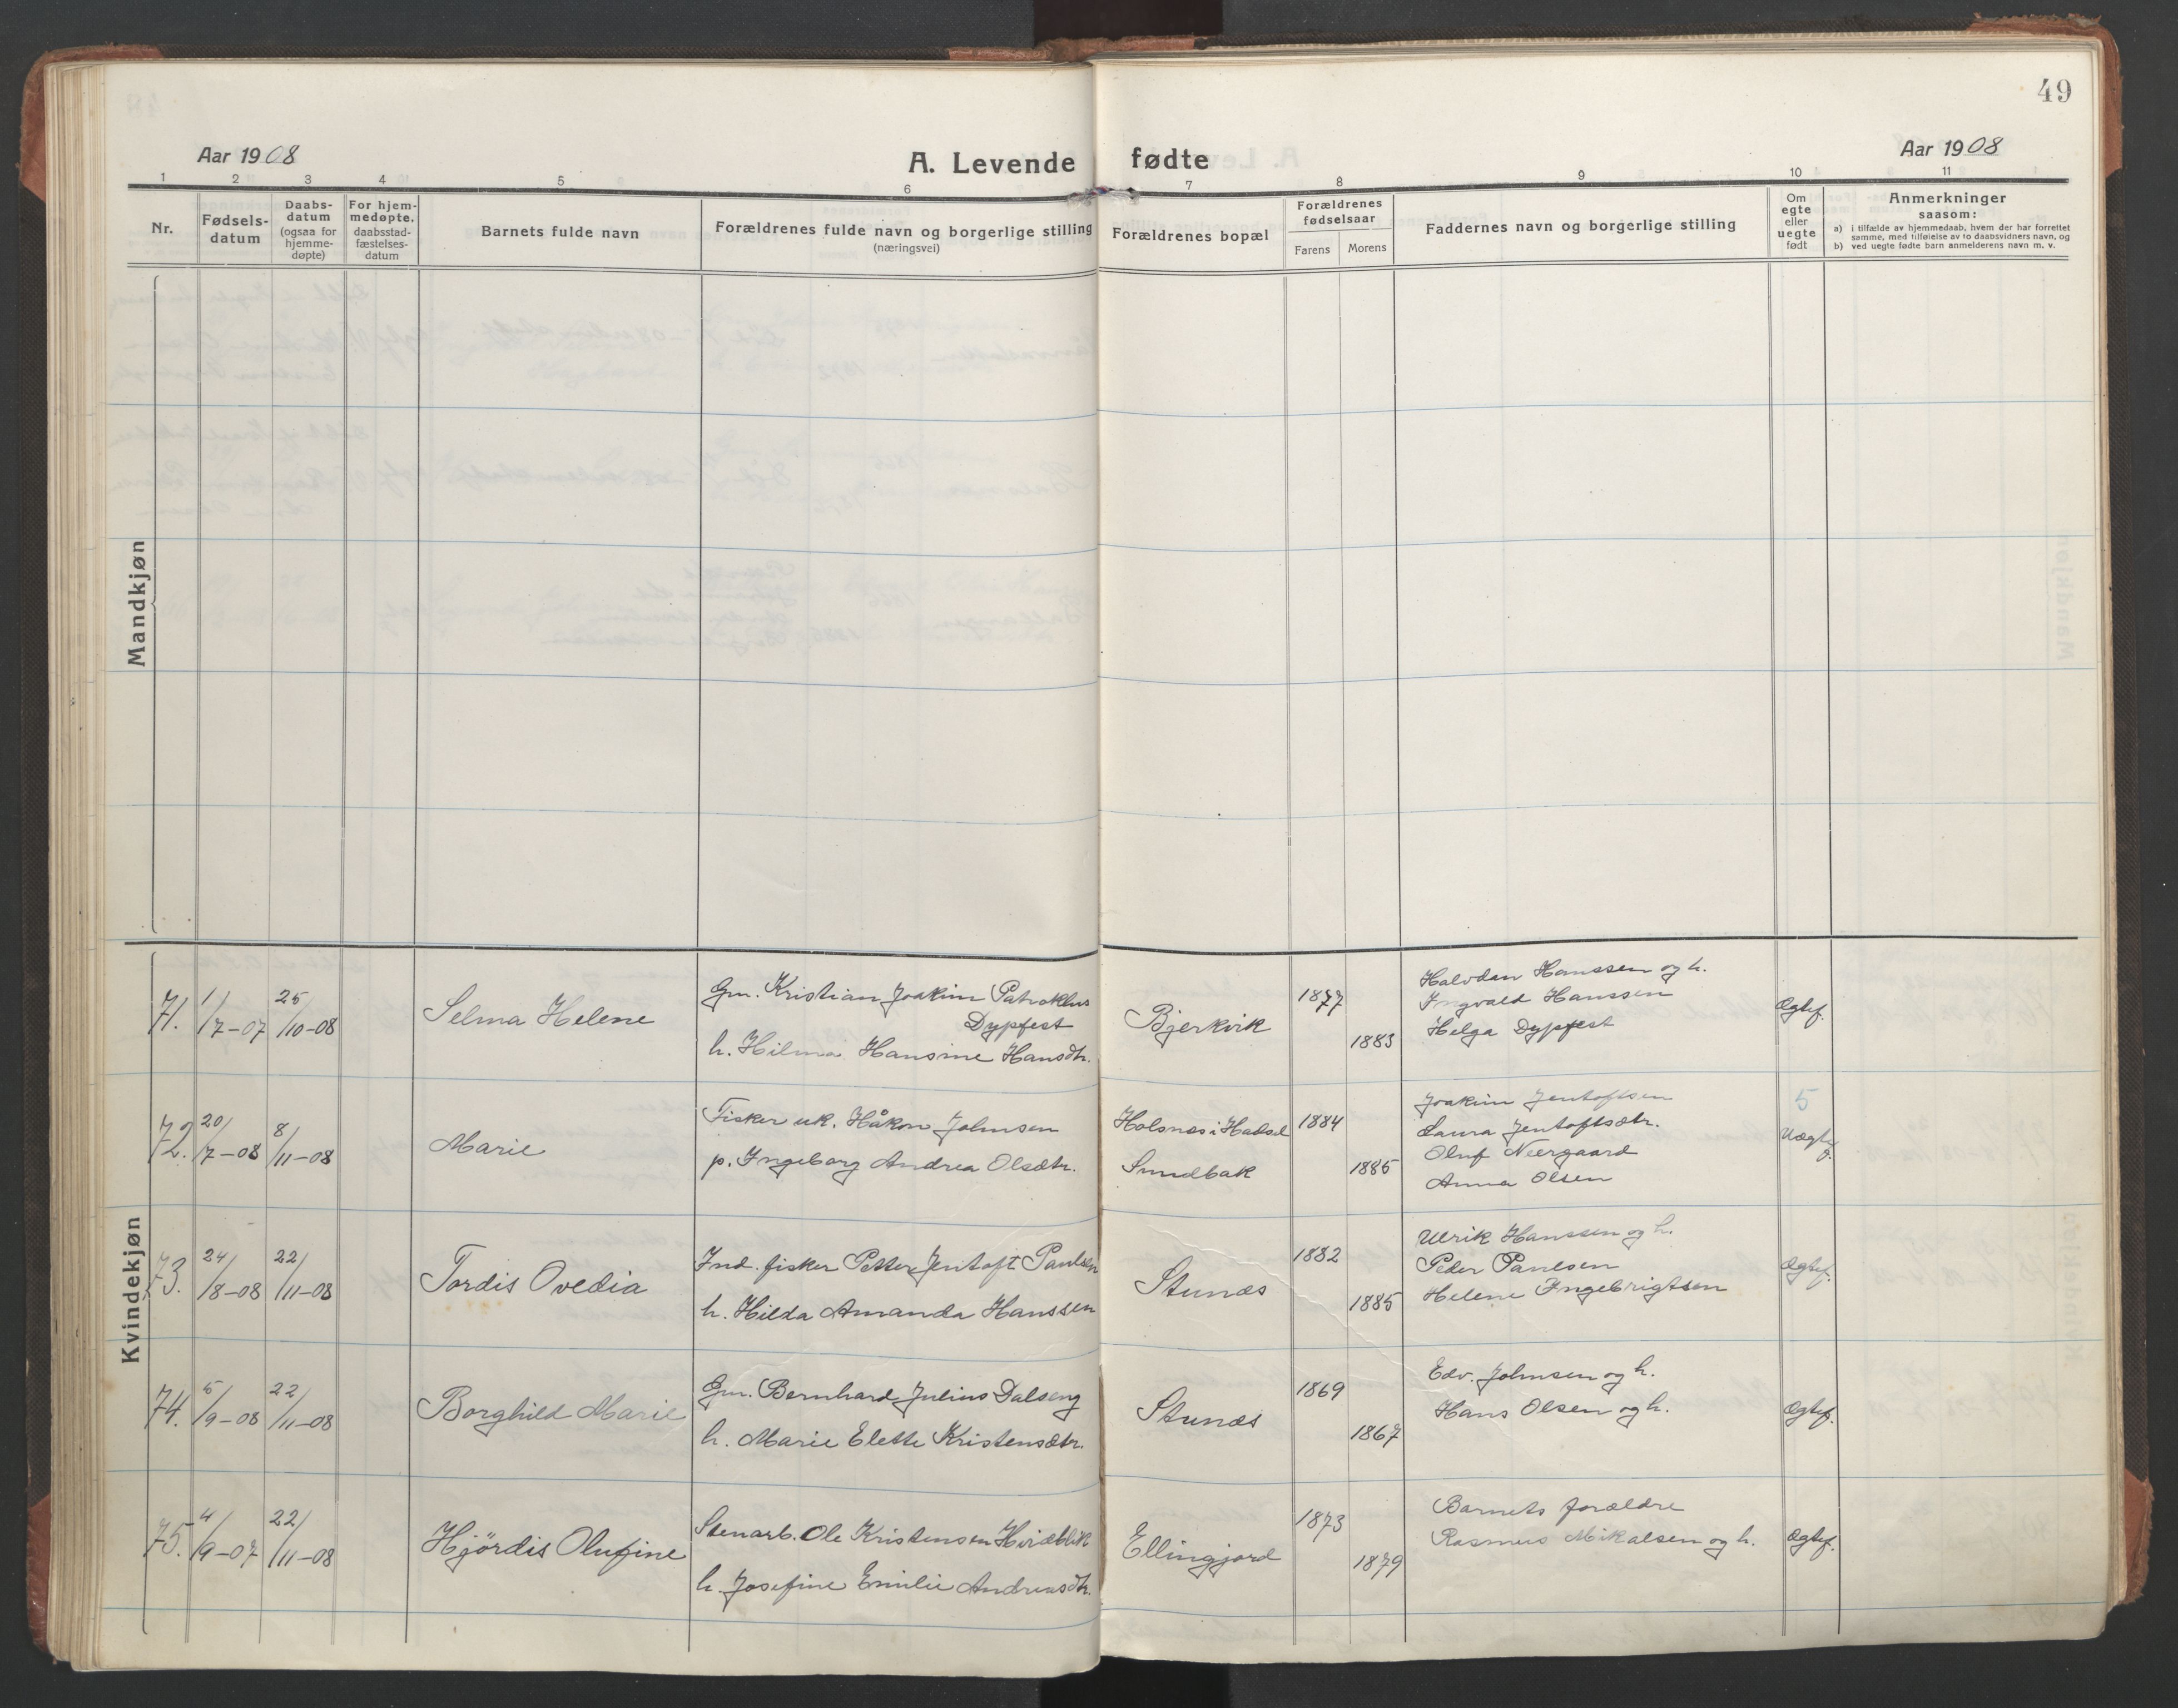 49
Aar 1908
A. Levende fødte
Aar 1908
1 2 3 4 5 6 7 8 9 10 11
Nr.
Fødsels-
datum
Daabs-
datum
(ogsaa for
hjemme-
døpte)
For hjem-
medøpte,
daabsstad-
fæstelses-
datum
Barnets fulde navn
Forældrenes fulde navn og borgerlige stilling
(næringsvei)
Forældrenes bopæl
Forældrenes
fødselsaar
Farens Morens
Faddernes navn og borgerlige stilling
Om
egte
eller
uegte
født
Anmerkninger
saasom:
a) i tilfælde av hjemmedaab, hvem der har forrettet
samme, med tilføielse av to daabsvidners navn, og
b) ved uegte fødte barn anmelderens navn m. v.
Mandkjøn
Kvindekjøn
71.
1/7-07
25/10-08
Selma Helene
Gm. Kristian Joakim Patroklus
Dypfest
h. Hilma Hansine Hansdtr.
Bjerkvik
1877
1883
Halvdan Hanssen og h.
Ingvald Hanssen
Helga Dypfest
Ægtef.
72.
20/7-08
8/11-08
Marie
Fisker uk. Håkon Johnsen
p. Ingeborg Andrea Olsdtr.
Holsnæs i Hadsel
Sundbak
1884
1885
Joakim Jentoftsen
Laura Jentoftsdtr.
Oluf Neergaard
Anna Olsen
5
73.
24/8-08
22/11-08
Tordis Ovedia
Ind. fisker Petter Jentoft Paulsen
h. Hilda Amanda Hanssen
Stunæs
1882
1885
Ulrik Hanssen og h.
Peder Paulsen
Helene Ingebrigtsen
Ægtef.
74.
5/9-08
22/11-08
Borghild Marie
Gm. Bernhard Julius Dalseng
h. Marie Elette Kristensdtr.
Stunæs
1869
1867
Edv. Johnsen og h.
Hans Olsen og h.
Ægtef.
75.
4/9-07
22/11-08
Hjördis Olufine
Stenarb. Ole Kristensen
h. Josefine Emilie Andreasdtr.
Ellingjord
1873
1879
Barnets forældre
Rasmus Mikalsen og h.
Ægtef.